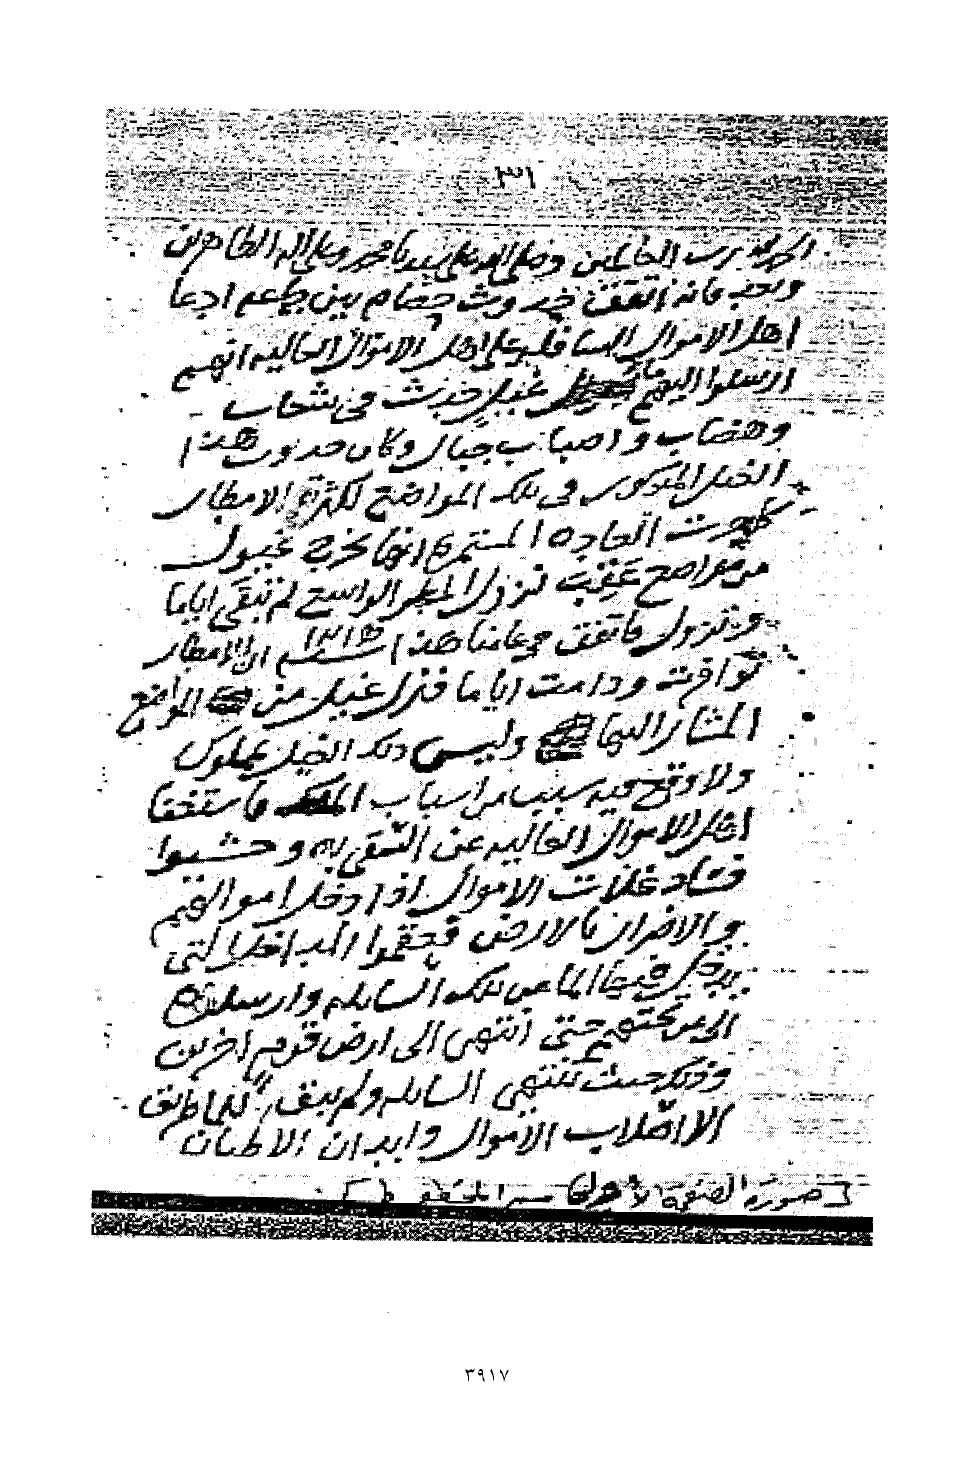 ٣١
الحمد لله رب العالمين وصلى الله على سيدنا محمد وعلى اله الطاهرين
وبعد فانه اتفق حدوث خصام بين ادعا
اهل الاموال السافله على اهل الاموال العاليه انهم
ارسلوا اليهم غيل حدث في شعاب
وهضاب واصباب جبال وكان حدوث هذا
الغيل المذكور في تلك المواضع لكثرة الامطار
كما جرت العاده المستمرة انها تخرج غيول
من مواضع عقيب نزول المطر الواسع ثم تبقى اياما
وتزول فاتفق في عامنا هذا ان الامطار
توافرت ودامت اياما فنزل غيل من المواضع
المشار اليها وليس ذلك الغيل بمملوك
ولا وقع فيه سبب من اسباب الملك فاستغنا
اهل الاموال العاليه عن السقي به وخشيوا
فساد غلات الاموال اذا دخل اموالهم
والاضرار بالارض فحقموا المداخل التي
يدخل فيها الما من تلك السايله وارسلوه
الى من تحتهم حتى انتهى الى ارض قوم اخرين
وذلك حيث تنتهي السايله ولم يبق للما طريق
الا اصلاب الاموال وابدان الاطيان
[صورة الصفحة الأولى من المخطوط]
٣٩١٧